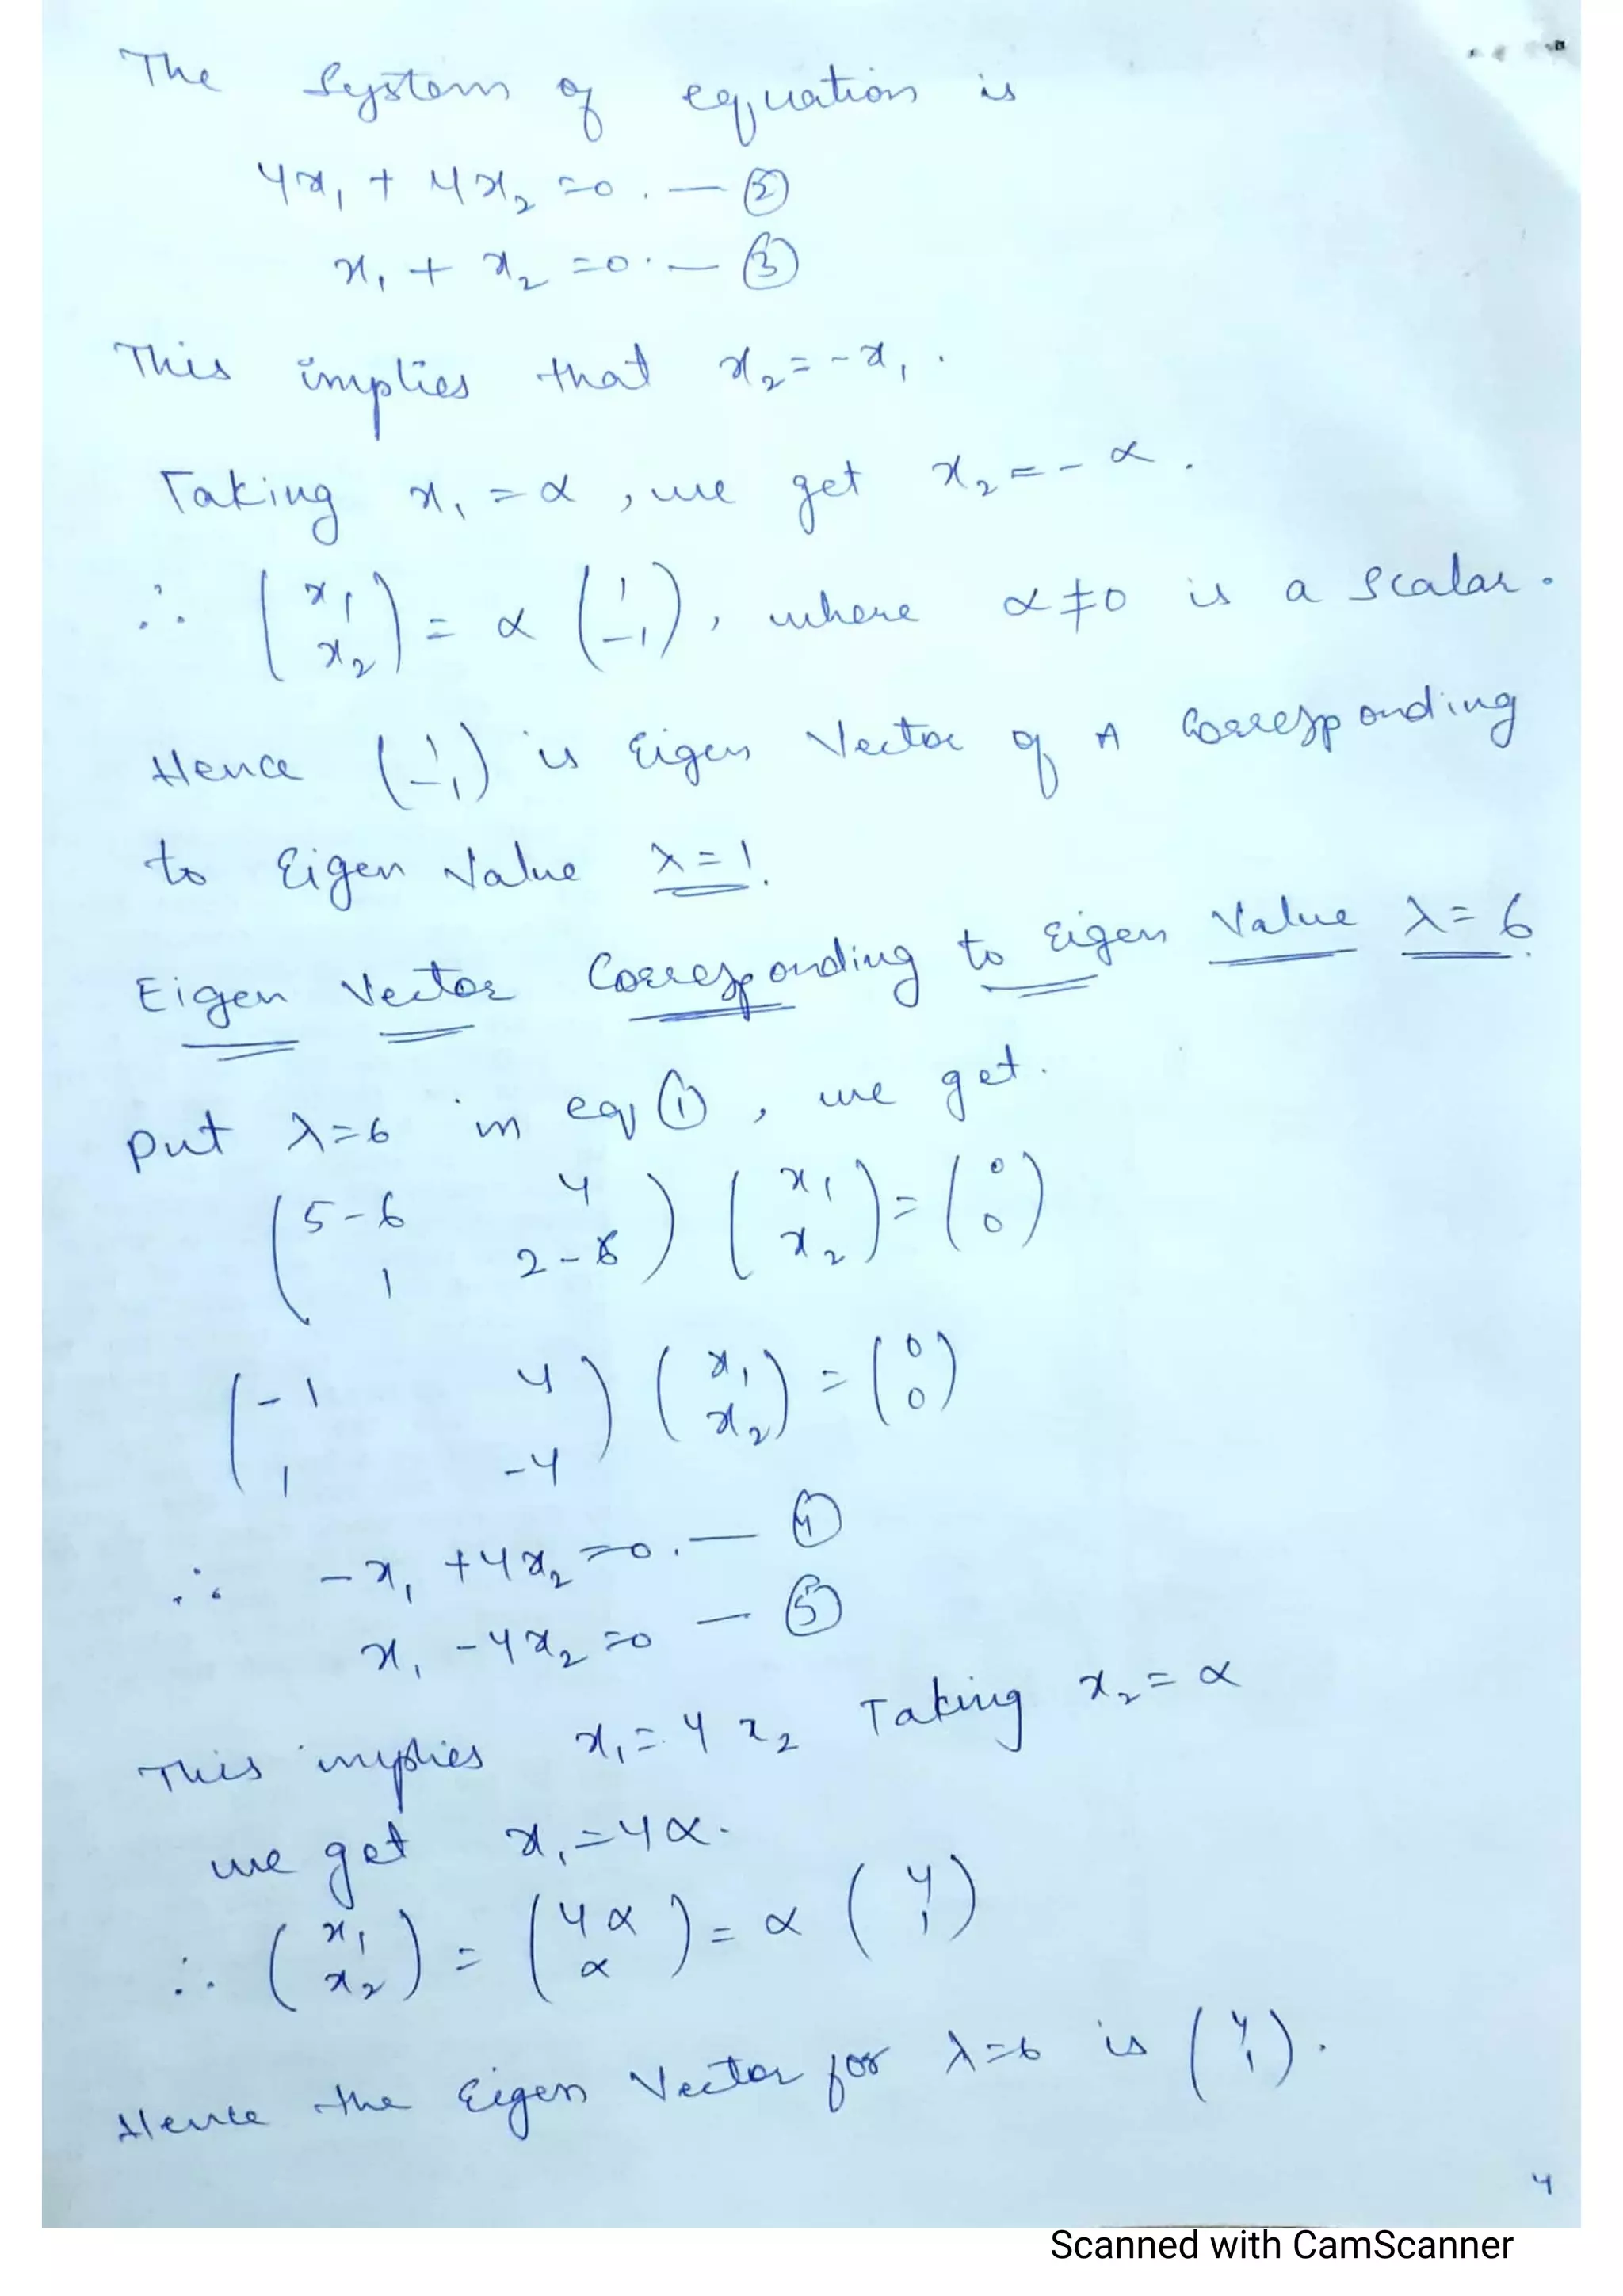 The System of equation is
4x₁ + 4x₂ = 0. — ②
x₁ + x₂ = 0. — ③
This implies that x₂ = -x₁.
Taking x₁ = α, we get x₂ = -α.
∴ (x₁ x₂) = α (1 -1), where α ≠ 0 is a Scalar.
Hence (1 -1) is Eigen Vector of A Corresponding
to Eigen Value λ = 1.
Eigen Vector Corresponding to Eigen Value λ = 6.
Put λ = 6 in eq ①, we get.
(5-6 4
1 2-6) (x₁ x₂) = (0 0)
(-1 4
1 -4) (x₁ x₂) = (0 0)
∴ -x₁ + 4x₂ = 0. — ④
x₁ - 4x₂ = 0 — ⑤
This implies x₁ = 4x₂ Taking x₂ = α
we get x₁ = 4α.
∴ (x₁ x₂) = (4α α) = α (4 1)
Hence the Eigen Vector for λ = 6 is (4 1).
4
Scanned with CamScanner